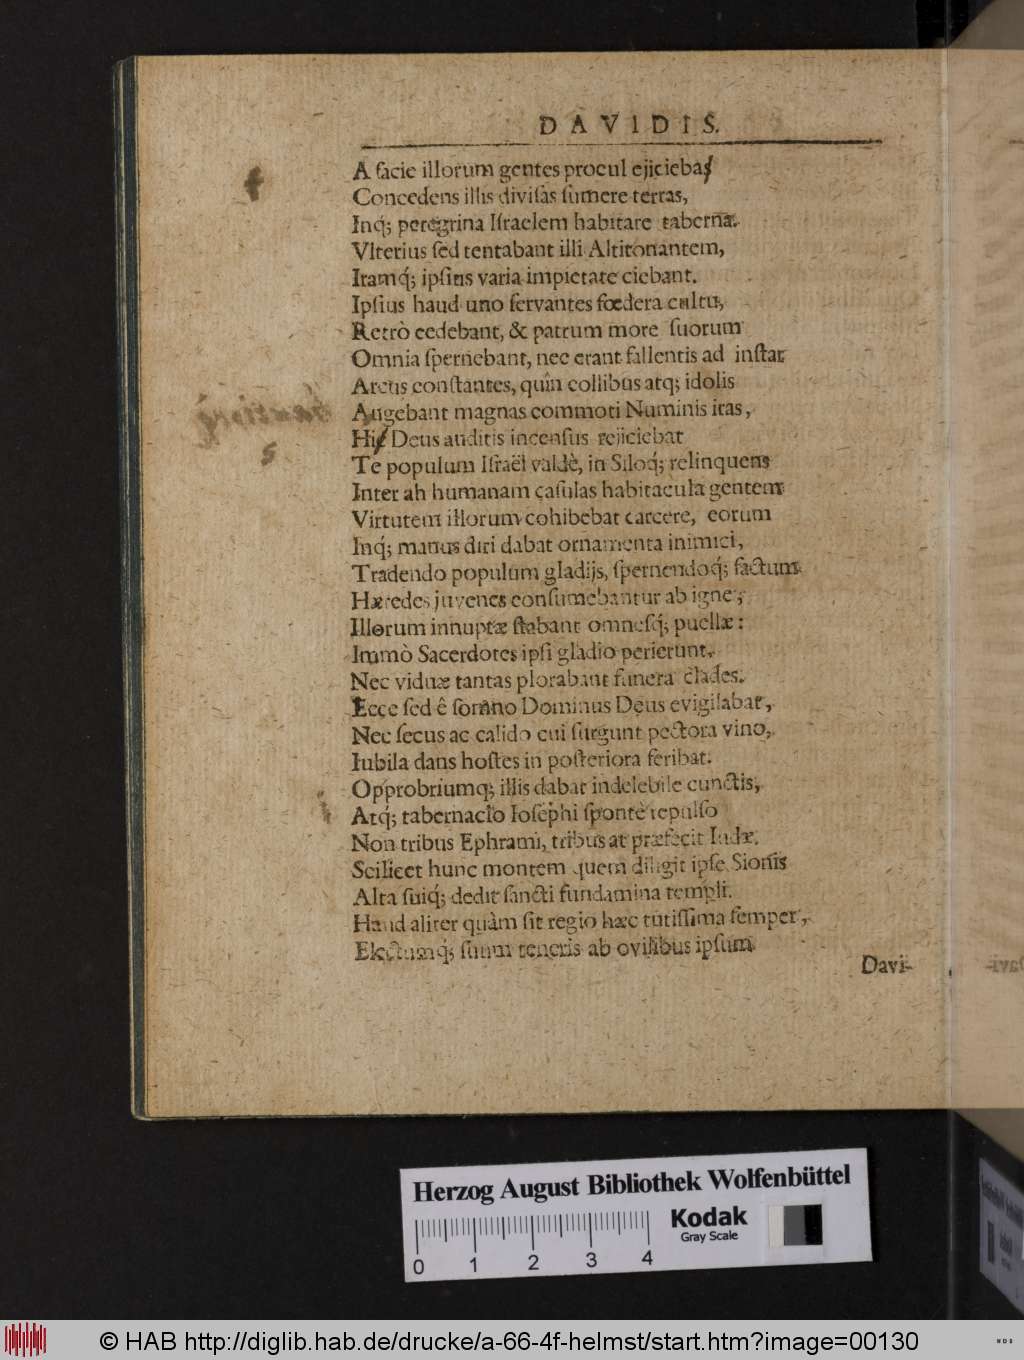 DAVIDIS.
A facie illorum gentes procul ejiciebaſ
Concedens illis diviſas ſumere terras,
Inq́; peregrina Iſraelem habitare taberna.
Vlterius ſed tentabant illi Altitonantem,
Iramq́; ipſius varia impietate ciebant.
Ipſius haud uno ſervantes fœdera cultu,
Retrò cedebant, & patrum more ſuorum
Omnia ſpernebant, nec erant fallentis ad inſtar
Arcus conſtantes, quin collibus atq; idolis
Augebant magnas commoti Numinis iras,
Deus auditis incenſus rejiciebat
Te populum Iſraël valdè, in Siloq́; relinquens
Inter ah humanam caſulas habitacula gentem
Virtutem illorum cohibebat carcere, eorum
Inq́; manus diri dabat ornamenta inimici,
Tradendo populum gladijs, ſpernendoq́; factum
Hæredes juvenes conſumebantur ab igne,
Illorum innuptæ ſtabant omneſq́; puellæ:
Immò Sacerdotes ipſi gladio perierunt,
Nec viduæ tantas plorabant funera clades.
Ecce ſed ê ſomno Dominus Deus evigilabat,
Nec ſecus ac calido cui ſurgunt pectora vino,
Iubila dans hoſtes in poſteriora feribat.
Opprobriumq; illis dabat indelebile cunctis,
Atq́; tabernaclo Ioſephi ſpontè repulſo
Non tribus Ephrami, tribus at præfecit Iudæ.
Scilicet hunc montem quem diligit ipſe Sionis
Alta ſuiq́; dedit ſancti fundamina templi.
Haud aliter quàm ſit regio hæc tutiſſima ſemper,
Electumq́; ſuum teneris ab ovilibus ipſum
Davi-
Herzog August Bibliothek Wolfenbüttel
Kodak
Gray Scale
0 1 2 3 4
© HAB http://diglib.hab.de/drucke/a-66-4f-helmst/start.htm?image=00130